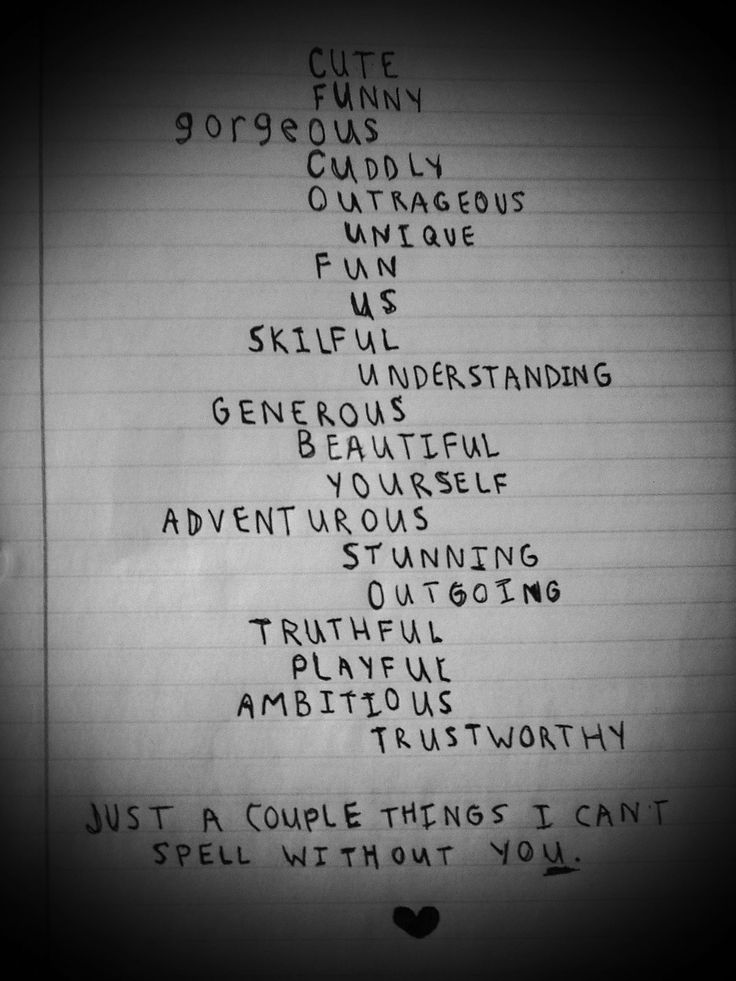 CUTE
FUNNY
gorgeous
CUDDLY
OUTRAGEOUS
UNIQUE
FUN
US
SKILFUL
UNDERSTANDING
GENEROUS
BEAUTIFUL
YOURSELF
ADVENTUROUS
STUNNING
OUTGOING
TRUTHFUL
PLAYFUL
AMBITIOUS
TRUSTWORTHY
JUST A COUPLE THINGS I CAN'T
SPELL WITHOUT YOU.